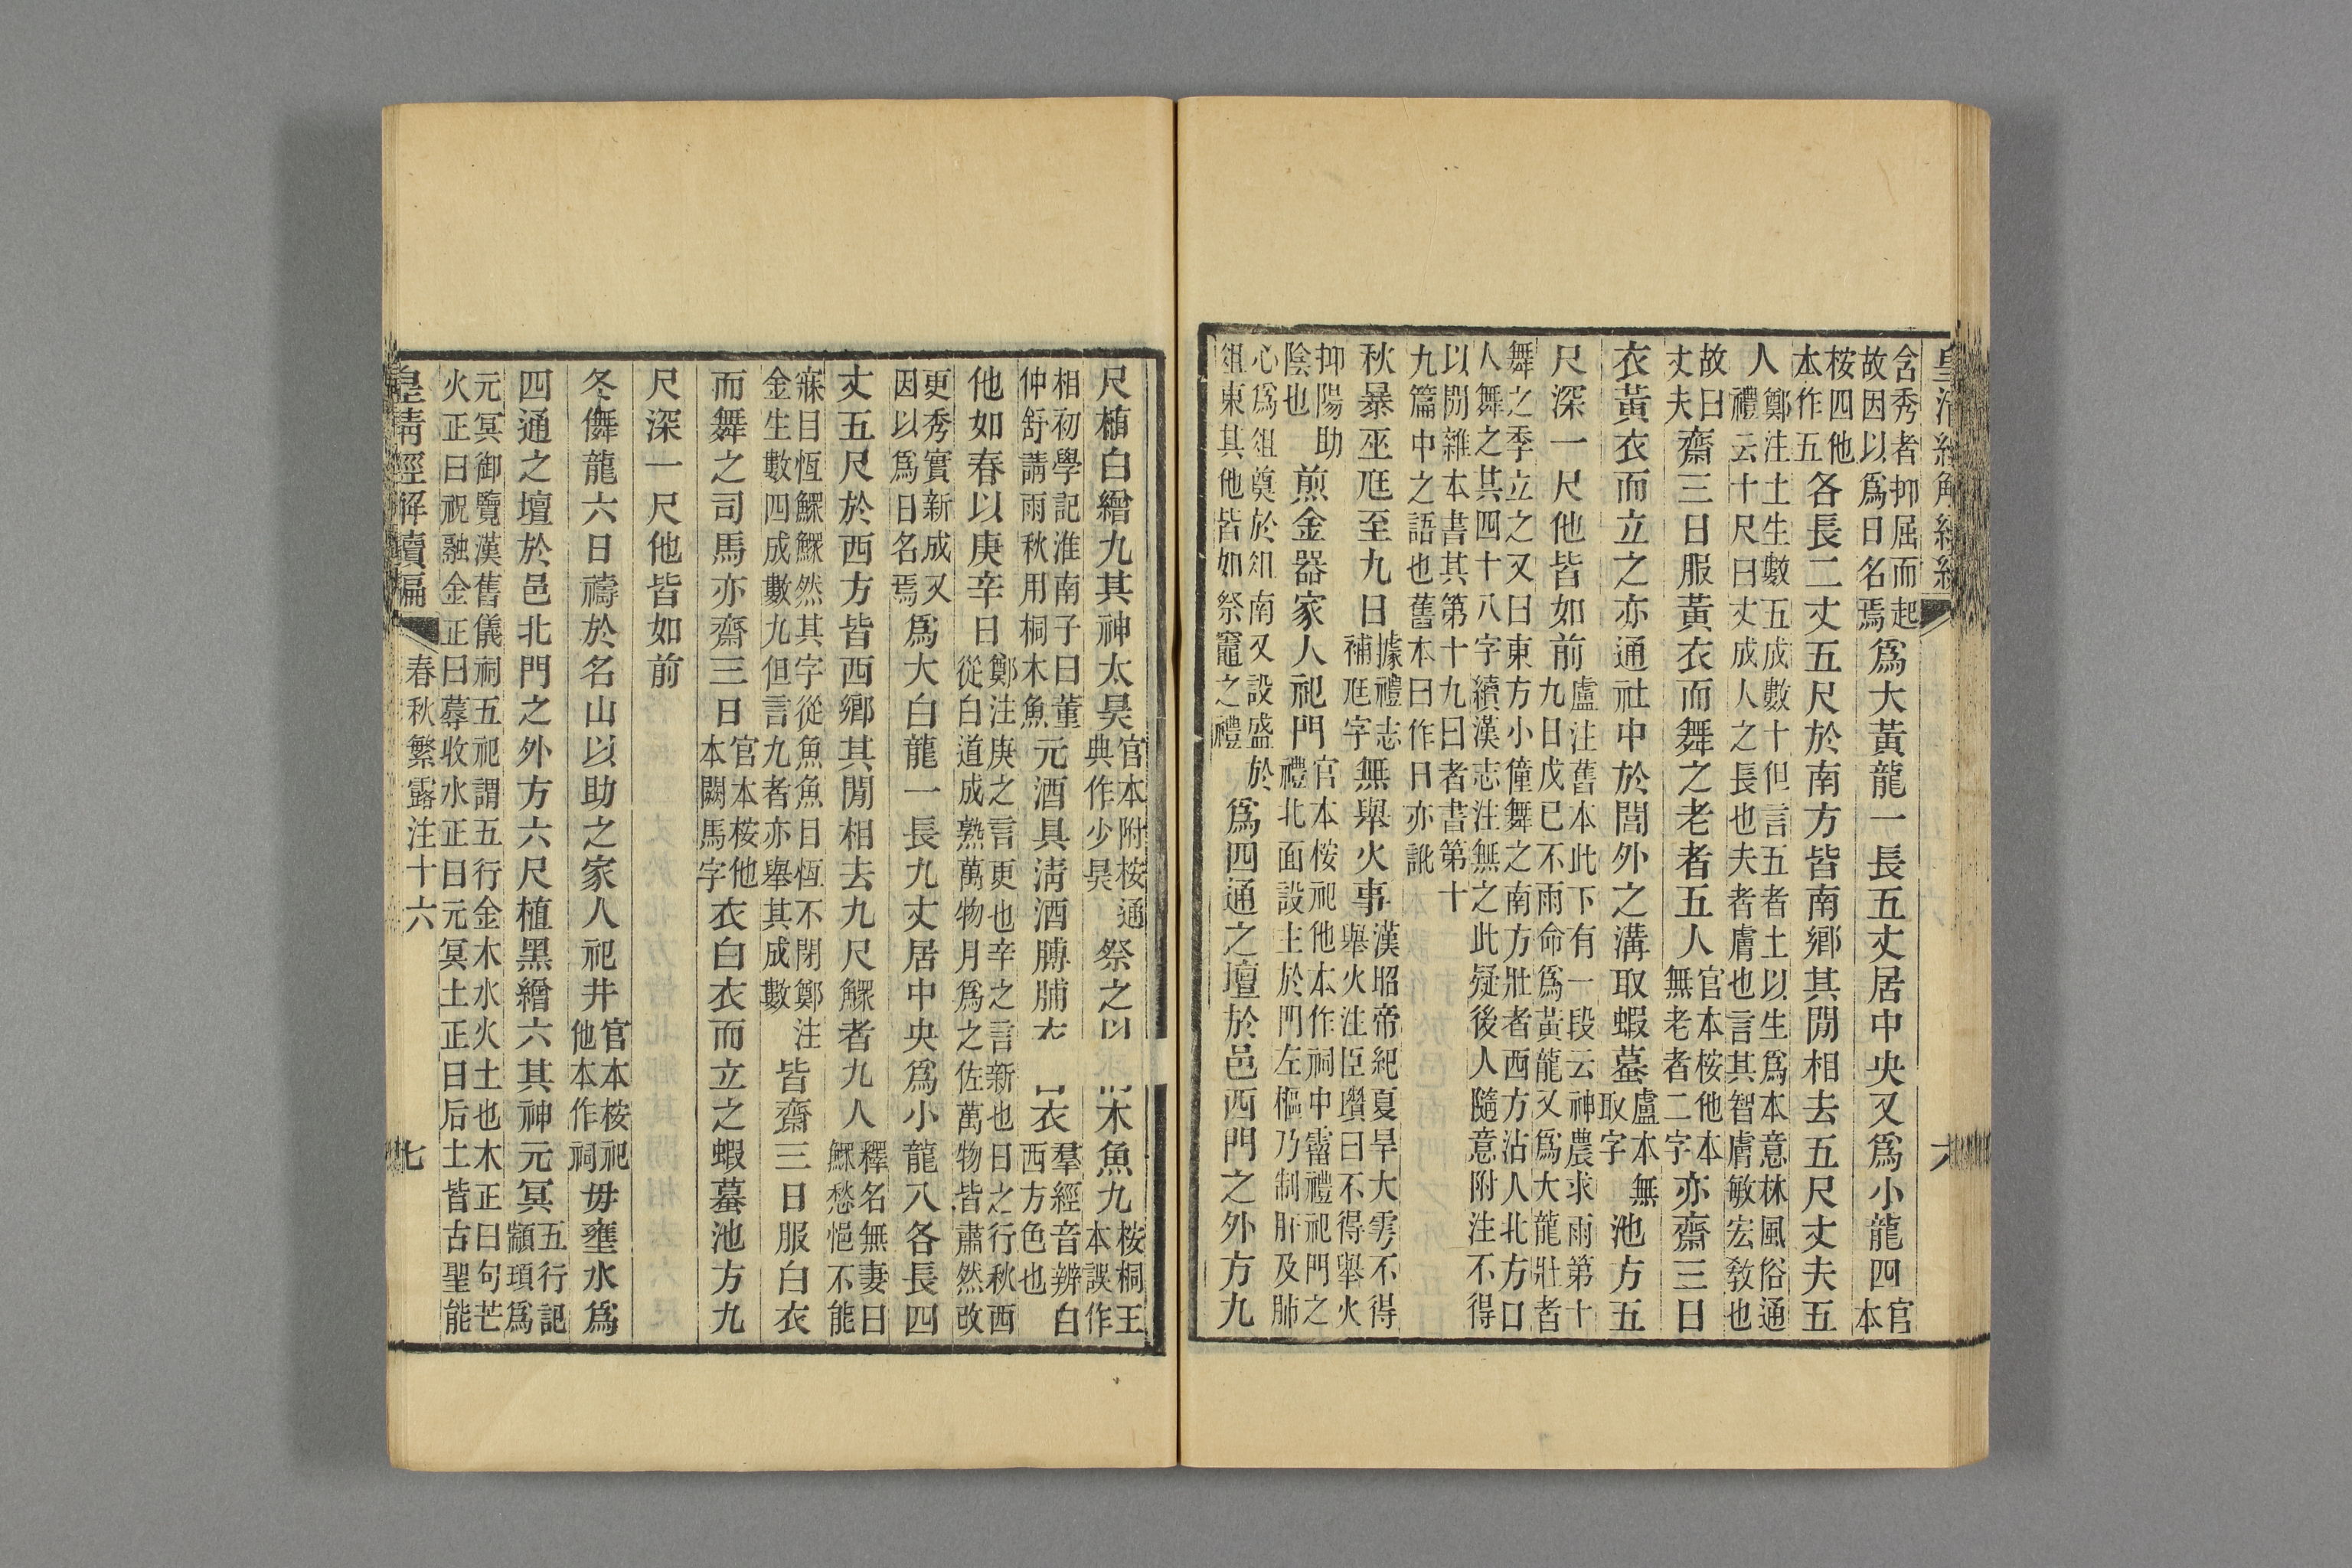 含秀者抑屈而起故因以爲日名焉爲大黃龍一長五丈居中央又爲小龍四官本
桉四他本作五各長二丈五尺於南方皆南鄉其閒相去五尺丈夫五
人鄭注土生數五成數十但言五者土以生爲本意林風俗通禮云十尺曰丈成人之長也夫者膚也言其智膚敏宏敎也
故曰丈夫齋三日服黃衣而舞之老者五人官本桉他本無老者二字亦齋三日
衣黃衣而立之亦通社中於閭外之溝取蝦蟇盧本無取字池方五
尺深一尺他皆如前盧注舊本此下有一段云神農求雨第十九日戊巳不雨命爲黃龍又爲大龍壯者
舞之季立之又曰東方小僮舞之南方壯者西方沾人北方口人舞之其四十八字續漢志注無之此疑後人隨意附注不得
以閒雜本書其第十九曰者書第十九篇中之語也舊本曰作日亦訛
秋暴巫尫至九日據禮志補尫字無舉火事漢昭帝紀夏旱大雩不得舉火注臣瓚曰不得舉火
抑陽助陰也煎金器家人祀門官本桉祀他本作祠中霤禮祀門之禮北面設主於門左樞乃制肝及肺
心爲俎奠於俎南又設盛於俎東其他皆如祭竈之禮爲四通之壇於邑西門之外方九
六
尺植白繒九其神太昊官本附桉通典作少昊祭之以木魚九桉桐王本誤作
相初學記淮南子曰董仲舒請雨秋用桐木魚元酒具淸酒膊脯衣衣羣經音辨白西方色也
他如春以庚辛日鄭注庚之言更也辛之言新也日之行秋西從白道成熟萬物月爲之佐萬物皆肅然改
更秀實新成又因以爲日名焉爲大白龍一長九丈居中央爲小龍八各長四
丈五尺於西方皆西鄉其閒相去九尺鰥者九人釋名無妻曰鰥愁悒不能
寐目恆鰥鰥然其字從魚魚目恆不閉鄭注金生數四成數九但言九者亦舉其成數皆齋三日服白衣
而舞之司馬亦齋三日官本桉他本闕馬字衣白衣而立之蝦蟇池方九
尺深一尺他皆如前
冬儛龍六日禱於名山以助之家人祀井官本桉祀他本作祠毋壅水爲
四通之壇於邑北門之外方六尺植黑繒六其神元冥五行記顓頊爲
元冥御覽漢舊儀祠五祀謂五行金木水火土也木正曰句芒火正曰祝融金正曰蓐收水正曰元冥土正曰后土皆古聖能
皇淸經解續編 春秋繁露注十六 七